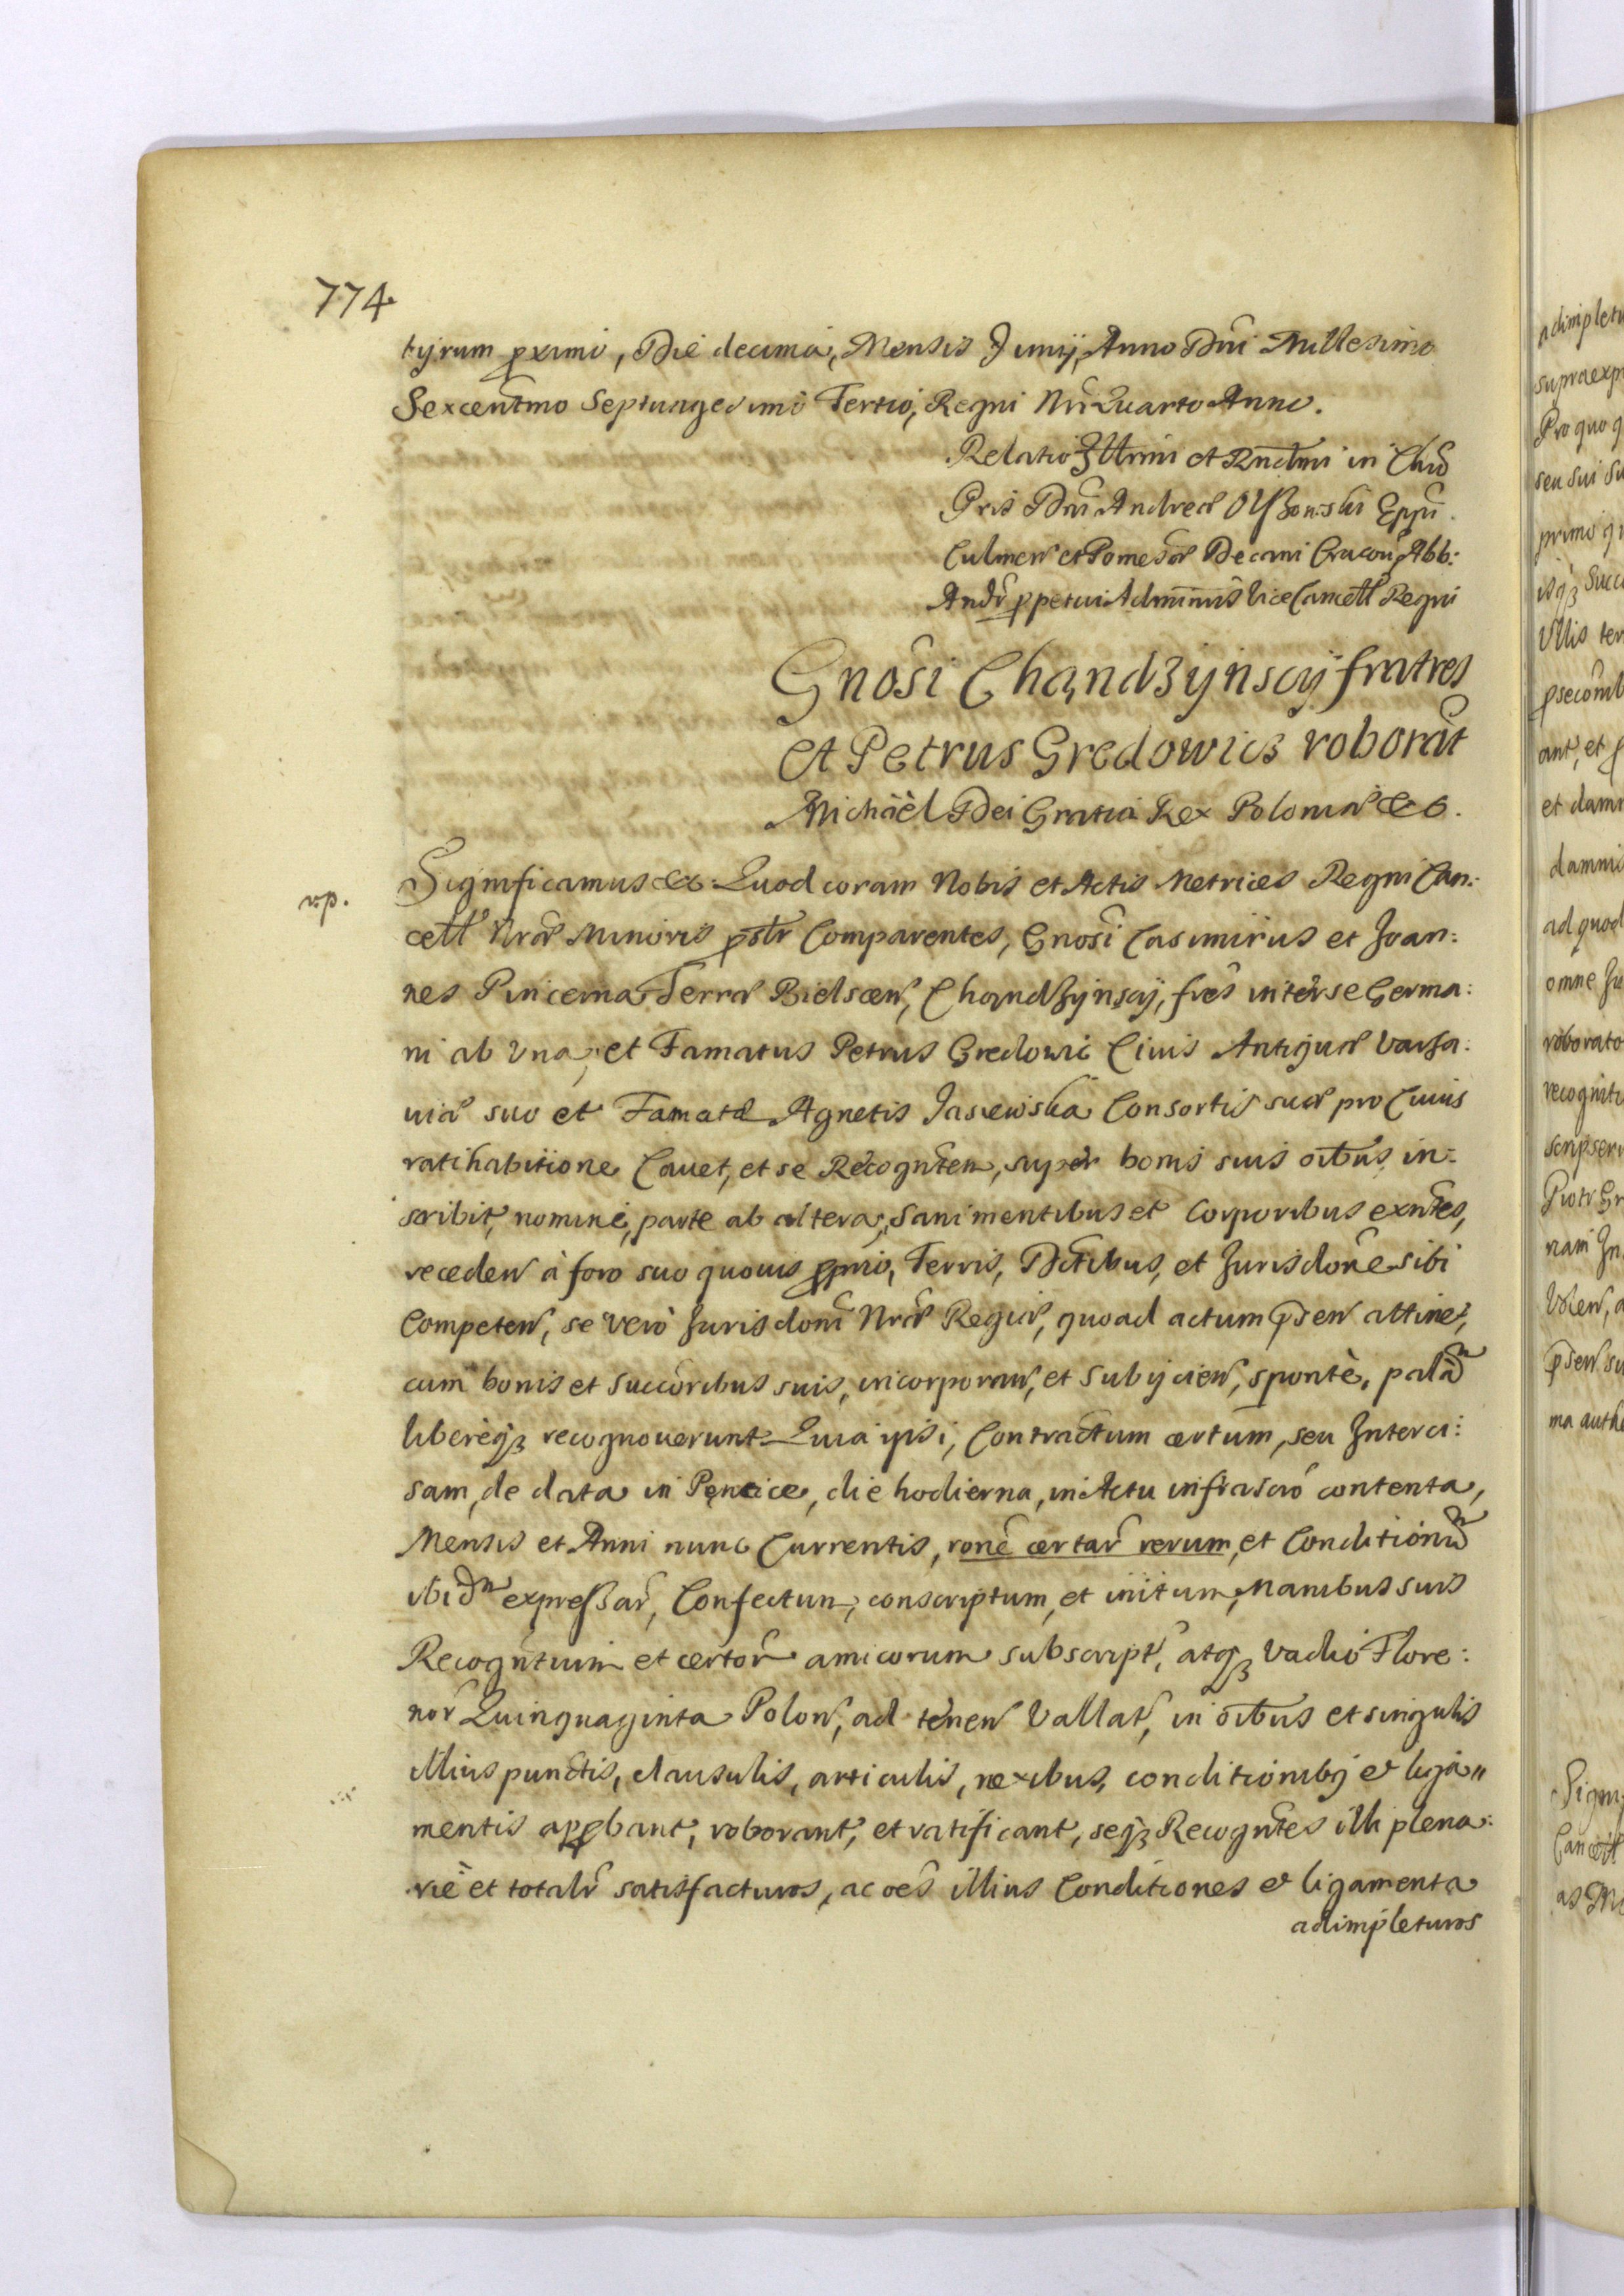 774
tyrum proximi, Die decima, Mensis Junij, Anno Dni Millesimo
Sexcentmo Septuagesimo Tertio, Regni Nri Quarto Anno.
Relatio Illmi et Rndmi in Chro
Pris Dni Andreæ Olszowski Eppi
Culmen et Pomesan Decani Cracou, Abb:
Andr perpetui Adminnis ViceCancell Regni
Gnosi Chądzijnscij fratres
et Petrus Gredowicz roborāt
Michäel Dei Gratia Rex Poloniæ &c.
v.p.
Significamus &c. Quod coram Nobis et Actis Metrices Regni Can:
cell Nræ Minoris prstr Comparentes, Gnosi Casimirus et Joan:
nes Pincerna Terræ Bielscen, Chądzijnscij, fres inter se Germa:
ni ab Vna, et Famatus Petrus Gredowic Ciuis Antiquæ Varsa:
uiæ suo et Famatæ Agnetis Jasiewska Consortis suæ pro Cuius
ratihabitione Cauet, et se Recognten, super bonis suis oibus in:
scribit, nomine, parte ab altera, Sani mentibus et Corporibus exntes,
receden à foro suo quouis proprio, Terris, Dctibus, et Jurisdone sibi
Competen, se verò Jurisdoni Nræ Regiæ, quoad actum prsen attinet,
cum bonis et Succoribus suis, incorporan, et Subijcien, spontè, palā
liberèq3 recognouerunt Quia ipsi, Contractum certum, seu Interci:
sam, de data in Pęncice, die hodierna, in Actu infrascro contenta,
Mensis et Anni nunc Currentis, rone certar rerum, et Conditionū
ibidm expressar, Confectum, conscriptum, et initum, Manibus suis
Recogntium et certor amicorum subscript, atq3 vadio Flore:
nor Quinquaginta Polon, ad tenen Vallat, in oibus et singulis
illius punctis, clausulis, articulis, nexibus, conditionibq et liga"
mentis approbant, roborant, et ratificant, seq3 Recogntes illi plena:
riè et totalr satisfacturos, ac oes illius Conditiones et ligamenta
adimpleturos